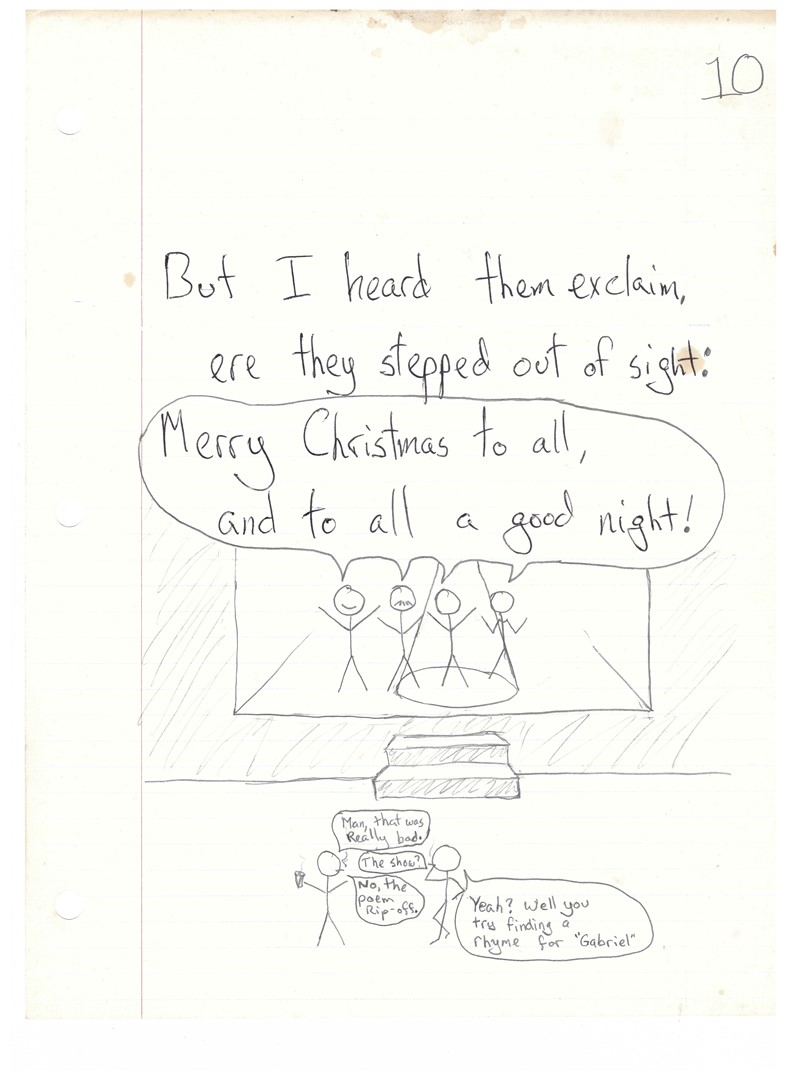 10
But I heard them exclaim,
ere they stepped out of sight:
Merry Christmas to all,
and to all a good night!
Man, that was
Really bad.
The show?
No, the
poem
Rip-off.
Yeah? Well you
try finding a
rhyme for "Gabriel"